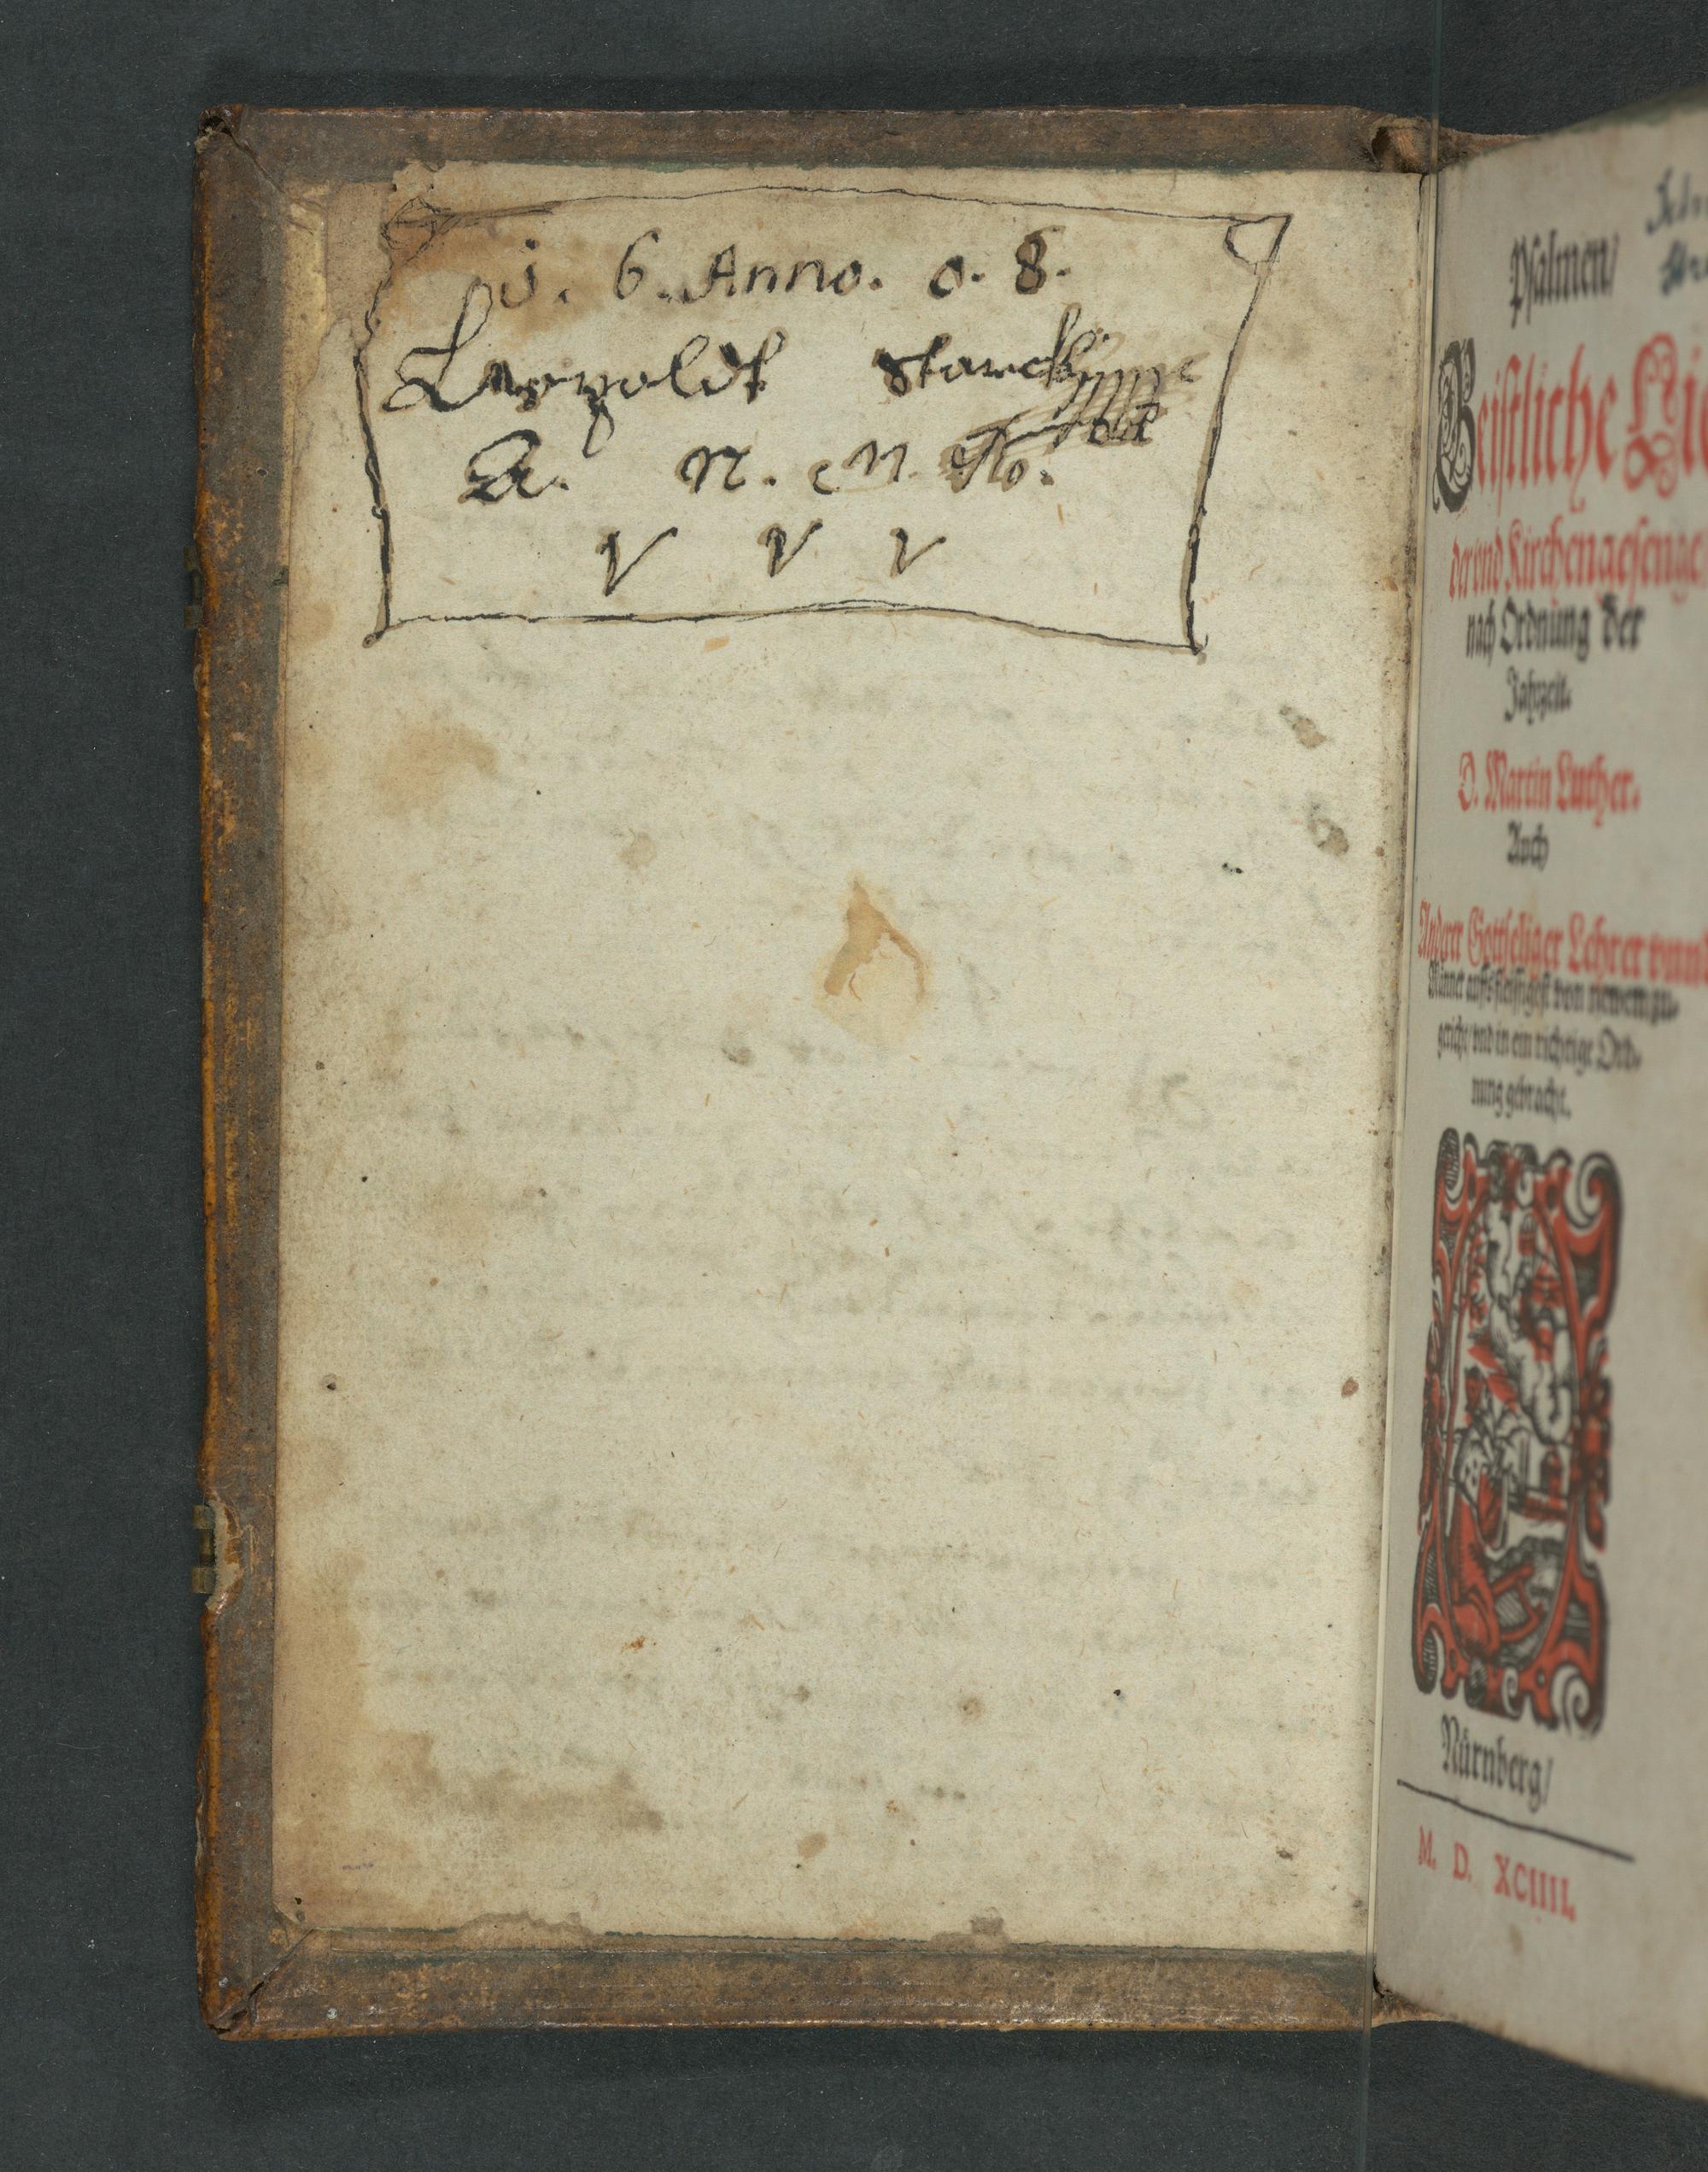 i. 6. Anno. 0. 8.
Leopoldt Starckh
A. N. N. No.
V V V
Psalmen/
Geistliche Lie
der vnd Kirchengesenge
nach Ordnung der
Jahrzeit.
D. Martin Luther.
Auch
Anderer Gottseliger Lehrer vnnd
Männer auffs fleissigest von newem zu-
gericht vnd in ein richtige Ord-
nung gebracht.
Nürnberg/
M. D. XCIIII.